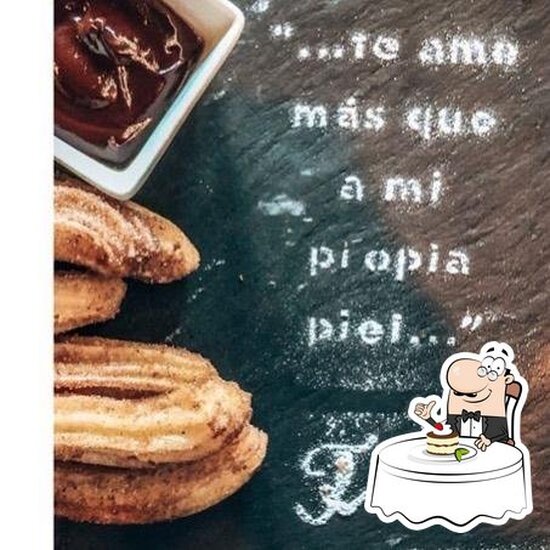 "...te amo
más que
a mi
propia
piel..."